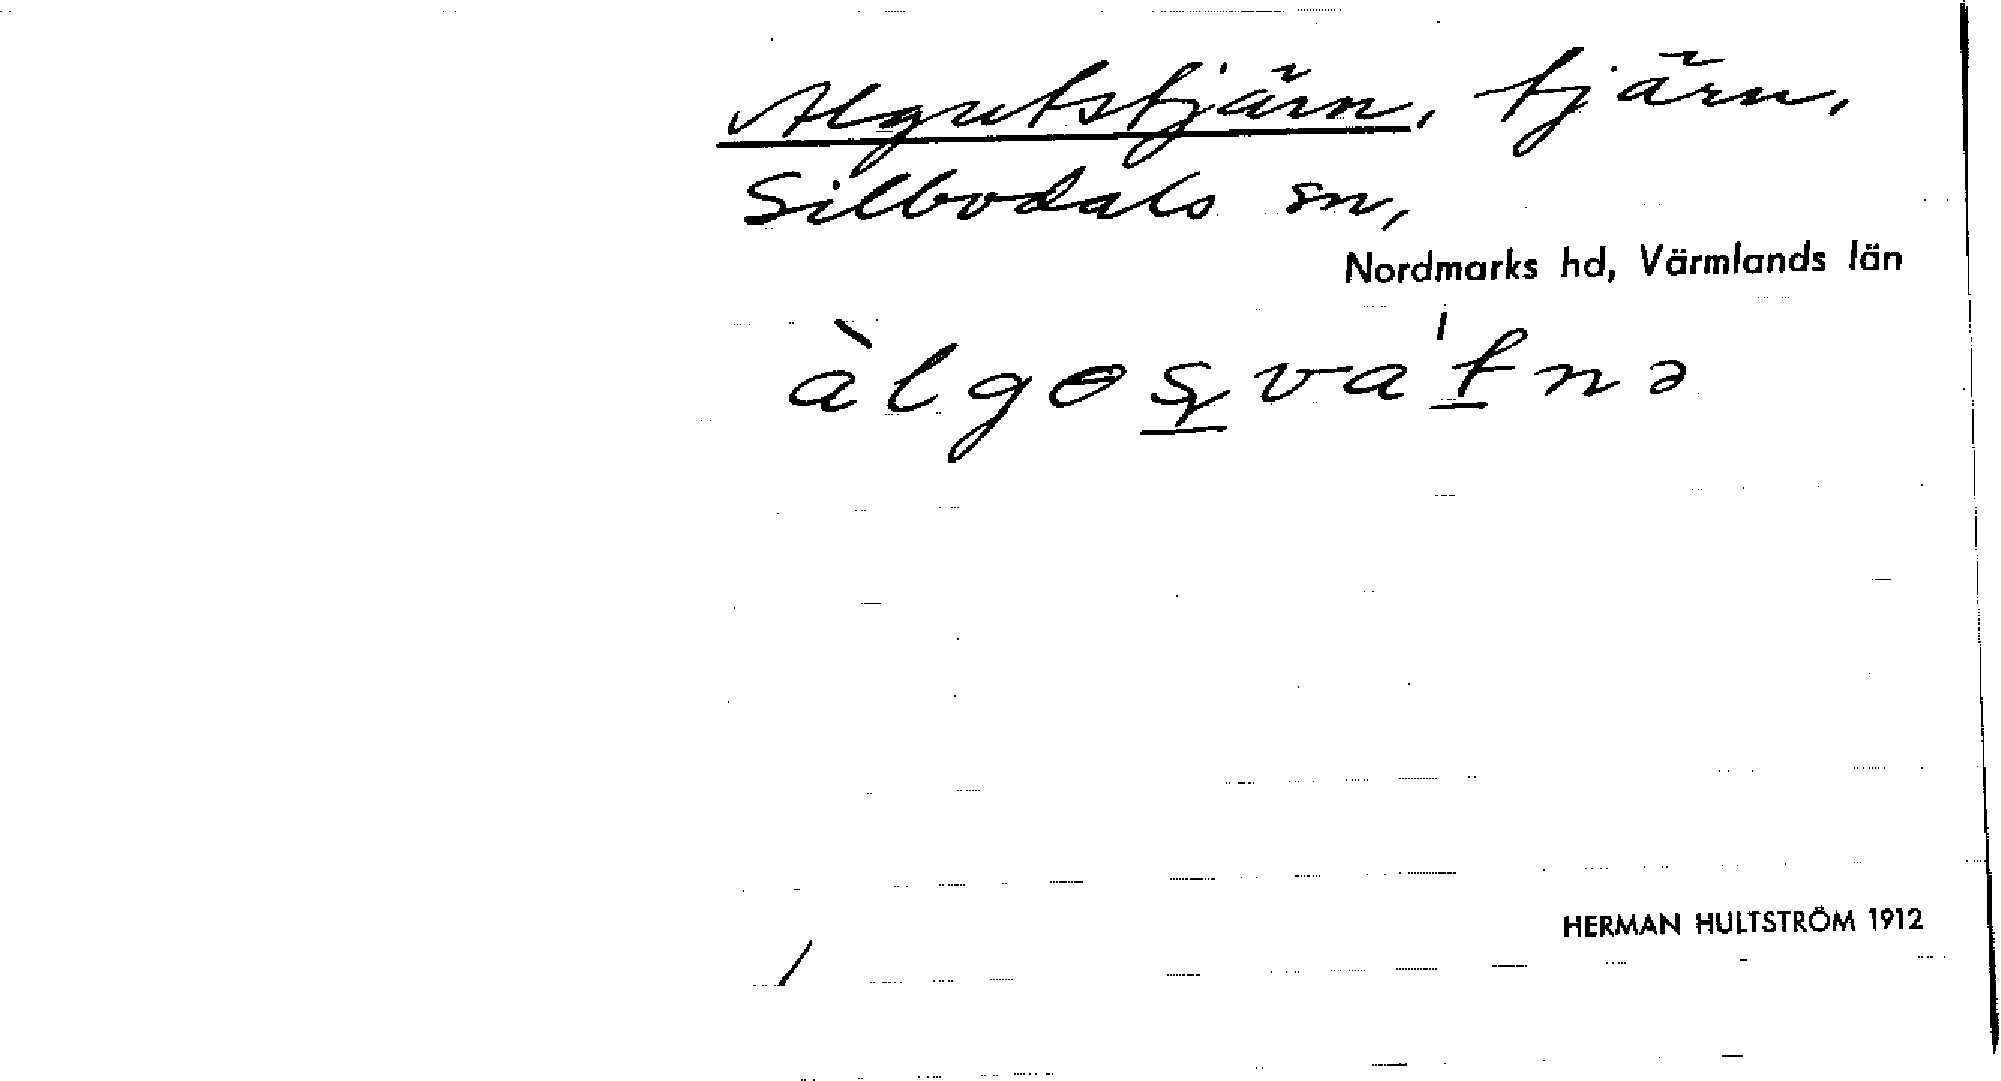 Algutstjärn, tjärn,
Silbodals sn,
Nordmarks hd, Värmlands län
àlgɵs̠va't̠nə
HERMAN HULTSTRÖM 1912
/